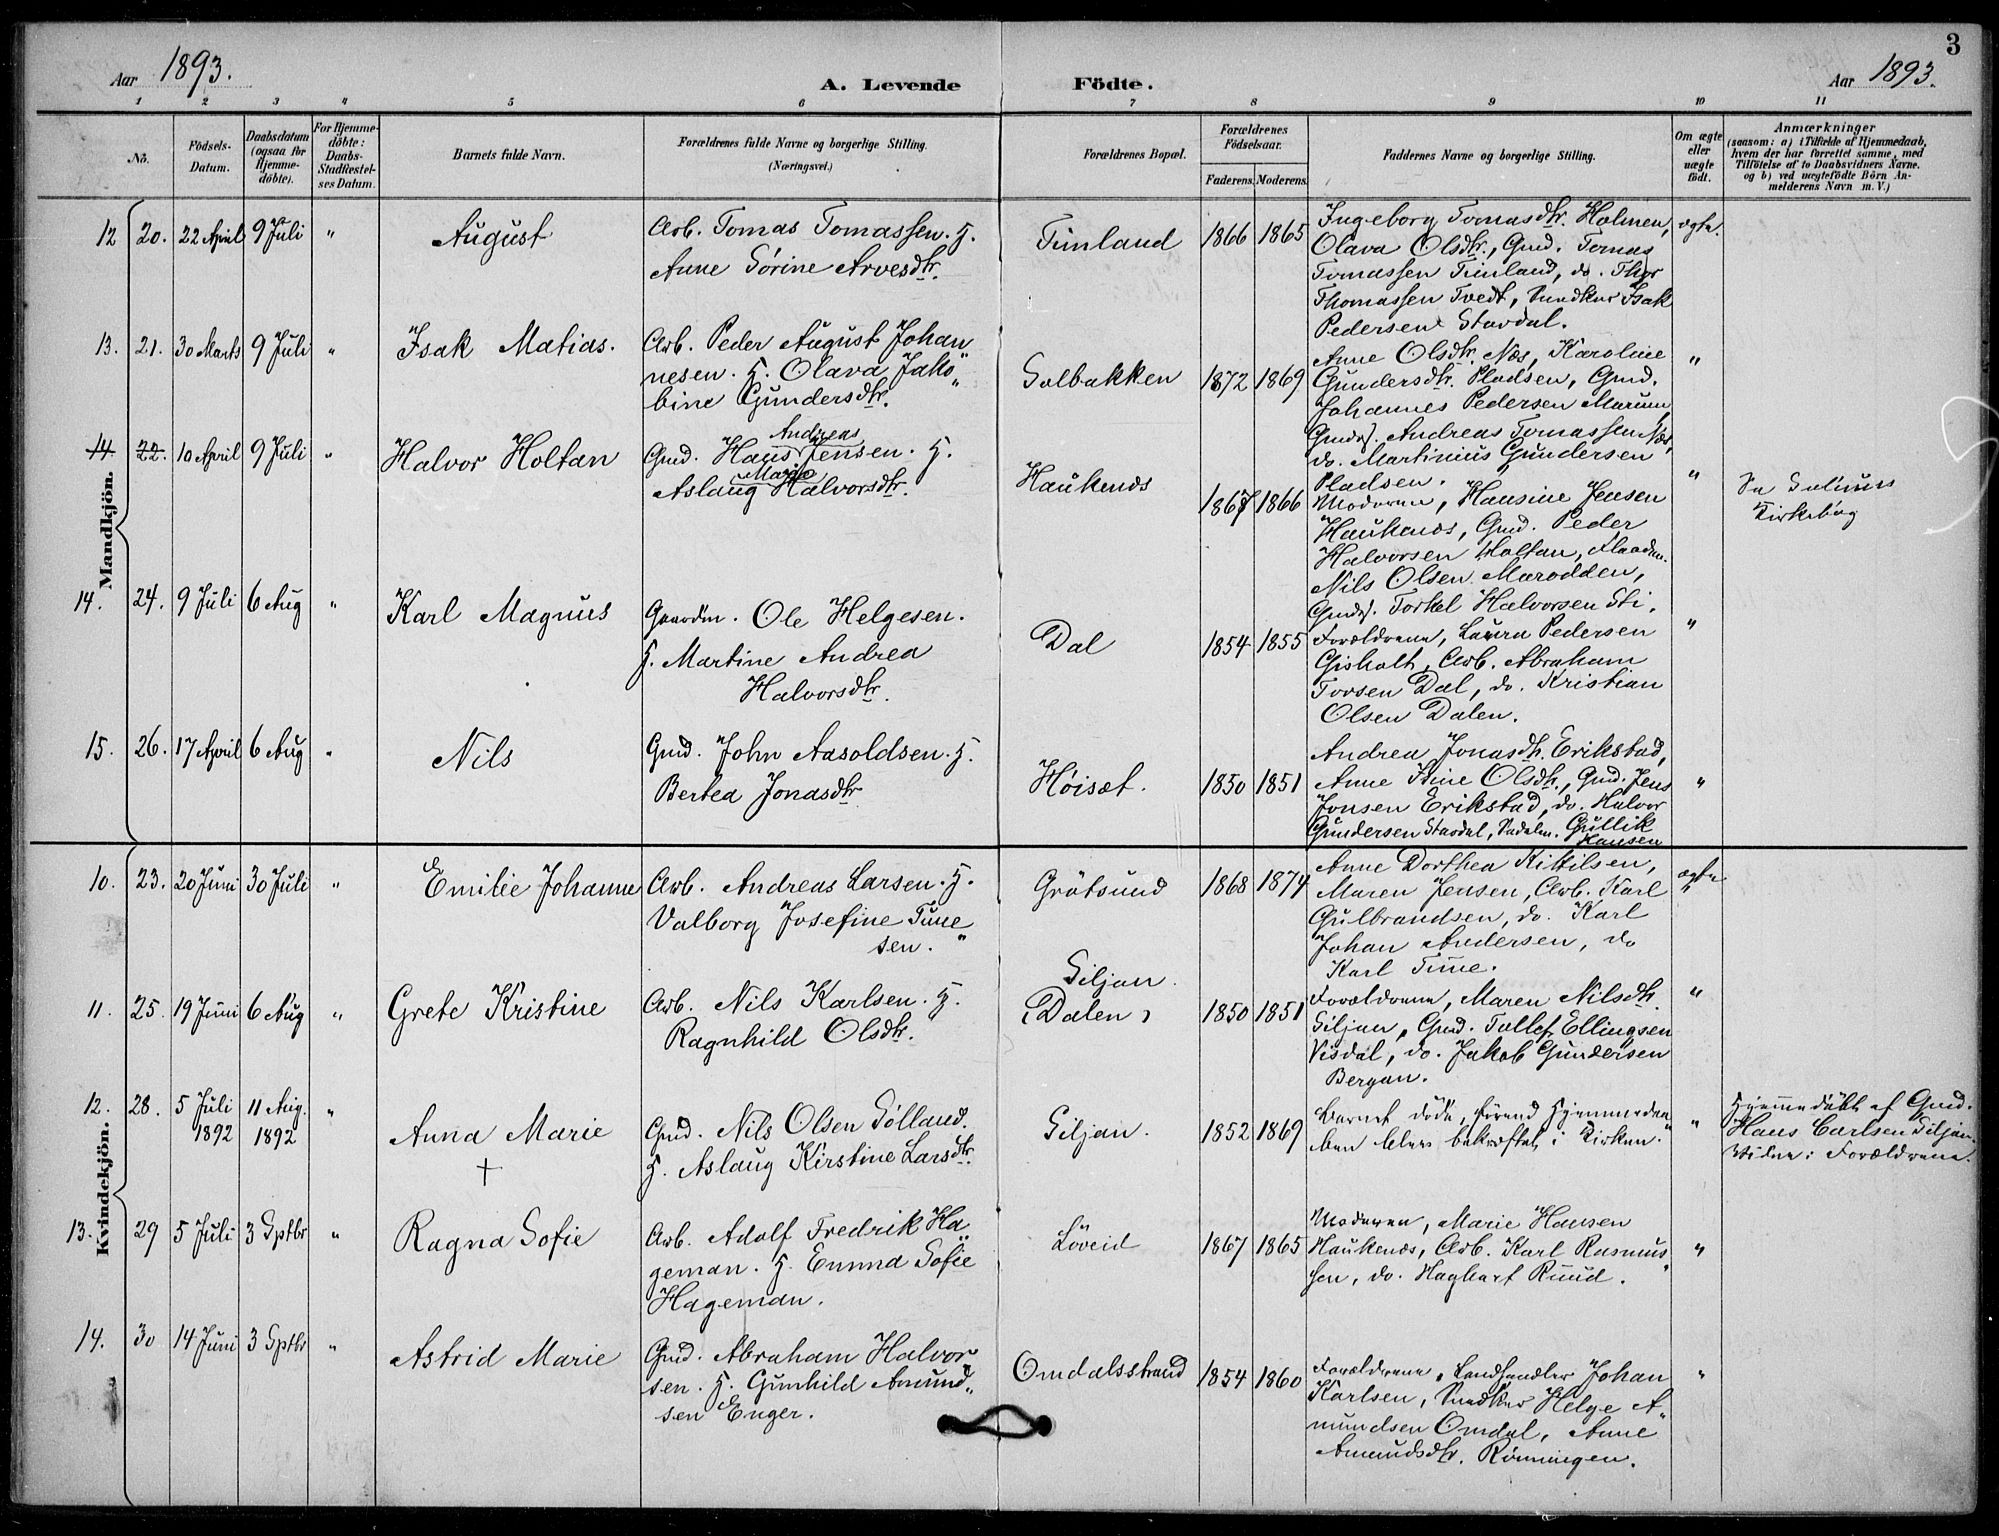 3
Aar 1893.
A. Levende Födte.
Aar 1893.
1 2 3 4 5 6 7 8 9 10 11
No.
Födsels-
Datum.
Daabsdatum
(ogsaa for
Hjemme-
döbte).
For Hjemme-
döbte:
Daabs-
Stadfæstel-
ses Datum.
Barnets fulde Navn.
Forældrenes fulde Navne og borgerlige Stilling.
(Næringsvei.)
Forældrenes Bopæl.
Forældrenes
Födselsaar.
Faderens. Moderens.
Faddernes Navne og borgerlige Stilling.
Om ægte
eller
uægte
födt.
Anmærkninger
(saasom: a) i Tilfælde af Hjemmedaab,
hvem der har forrettet samme, med
Tilföielse af to Daabsvidners Navne.
og b) ved uægtefödte Börn An-
melderens Navn m. V.)
Mandkjön.
12 20. 22 April 9 Juli "
August
Arb. Tomas Tomassen. H.
Anne Sørine Arvesdtr.
Timland
1866 1865
Ingeborg Tomasdtr. Holmen,
Olava Olsdtr., Gmd. Tomas
Tomassen Timland, do. Thor
Thomassen Tvedt, Ungkar Isak
Pedersen Stavdal.
ægte.
13. 21. 30 Marts 9 Juli "
Isak Matias.
Arb. Peder August Johan
nesen. H. Olava Jako"
bine Gundersdtr.
Solbakken
1872 1869
Anne Olsdtr. Næs, Karoline
Gundersdtr. Pladsen, Gmd.
Johannes Pedersen Marum,
Gmds. Andreas Tomassen Næs,
do. Martinius Gundersen
Pladsen.
"
14. 22. 10 April 9 Juli "
Halvor Holtan
Andreas
Gmd. Hans Jensen. H.
Marie
Aslaug Halvorsdtr.
Haukenæs
1867 1866
Moderen, Hansine Jensen
Haukenæs, Gmd. Peder
Halvorsen Holtan,
Nils Olsen Marodden,
Gmds. Torkel Halvorsen Sti.
"
Se Solums
Kirkebog
14. 24. 9 Juli 6 Aug "
Karl Magnus
Gaardm. Ole Helgesen.
H. Martine Andrea
Halvorsdtr.
Dal
1854 1855
Forældrene, Laura Pedersen
Gisholt, Arb. Abraham
Torsen Dal, do. Kristian
Olsen Dalen.
"
15. 26. 17 April 6 Aug "
Nils
Gmd. John Aasoldsen. H.
Bertea Jonasdtr
Høisæt.
1850 1851
Andrea Jonasdtr. Erikstad,
Anne Stine Olsdtr., Gmd. Jens
Jonsen Erikstad, do. Halvor
Gundersen Stavdal, Gullik
Hansen
"
Kvindekjön.
10. 23. 20 Juni 30 Juli "
Emilie Johanne
Arb. Andreas Larsen. H.
Valborg Josefine Tune"
sen.
Grötsund
1868 1874
Anne Dorthea Kittilsen,
Maren Jensen, Arb. Karl
Gulbrandsen, do. Karl
Johan Andersen, do
Karl Tune.
ægte
11. 25. 19 Juni 6 Aug "
Grete Kristine
Arb. Nils Karlsen. H.
Ragnhild Olsdtr.
Siljan.
(Dalen)
1850 1851
Forældrene, Maren Nilsdtr.
Siljan, Gmd. Tollef Ellingsen
Visdal, do. Jakob Gundersen
Bergan.
"
12. 28. 5 Juli 1892 11 Aug. 1892 "
Anna Marie
†
Gmd. Nils Olsen Gölland.
H. Aslaug Kirstine Larsdtr.
Siljan.
1852 1869
Barnet döde, förend Hjemmedaa"
ben blev bekræftet i Kirken.
"
Hjemmedöbt af Gmd.
Hans Carlsen Siljan.
Vidne: Forældrene.
13. 29 5 Juli 3 Sptbr "
Ragna Sofie
Arb. Adolf Fredrik Ha"
geman. H. Emma Sofie
Hageman.
Löveid
1867 1865
Moderen, Marie Hansen
Haukenæs, Arb. Karl Rasmus"
sen, do. Haghart Ruud.
"
14. 30 14 Juni 3 Sptbr "
Astrid Marie
Gmd. Abraham Halvor
sen. H. Gunhild Amund"
sen Enger.
Omdalsstrand
1854 1860
Forældrene, Landhandler Johan
Karlsen, Ungkar Helge A"
mundsen Omdal, Anne
Amundsdtr. Rönningen.
"